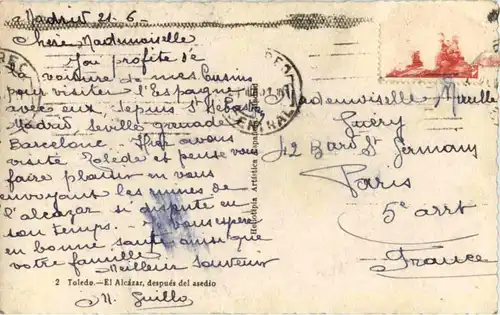 Madrid 21-6
Chère Mademoiselle
J'ai profité de
la voiture de mes cousins
pour visiter l'Espagne
avec eux, depuis St Sébas
Madrid Séville Grenade
Barcelone. Hier avons
visité Tolède et pense vous
faire plaisir en vous
envoyant les ruines de
l'alcazar si disputé en
son temps. Je vous espère
en bonne santé ainsi que
votre famille.
Meilleur souvenir
M. Guillo
2 Toledo.—El Alcázar, después del asedio
Heliotipia Artística Española
Mademoiselle
Guéry
42 Bard St Germain
Paris
5e arrt.
France